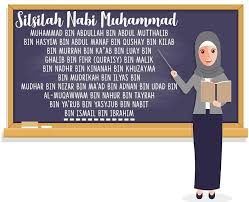 Silsilah Nabi Muhammad
MUHAMMAD BIN ABDULLAH BIN ABDUL MUTTHALIB
BIN HASYIM BIN ABDUL MANAF BIN QUSHAY BIN KILAB
BIN MURRAH BIN KA'AB BIN LUAY BIN
GHALIB BIN FIHR (QURAISY) BIN MALIK
BIN NADHR BIN KINANAH BIN KHUZAYMA
BIN MUDRIKAH BIN ILYAS BIN
MUDHAR BIN NIZAR BIN MA'AD BIN ADNAN BIN UDAD BIN
AL-MUQAWWAM BIN NAHUR BIN TAYRAH
BIN YA'RUB BIN YASYJUB BIN NABIT
BIN ISMAIL BIN IBRAHIM